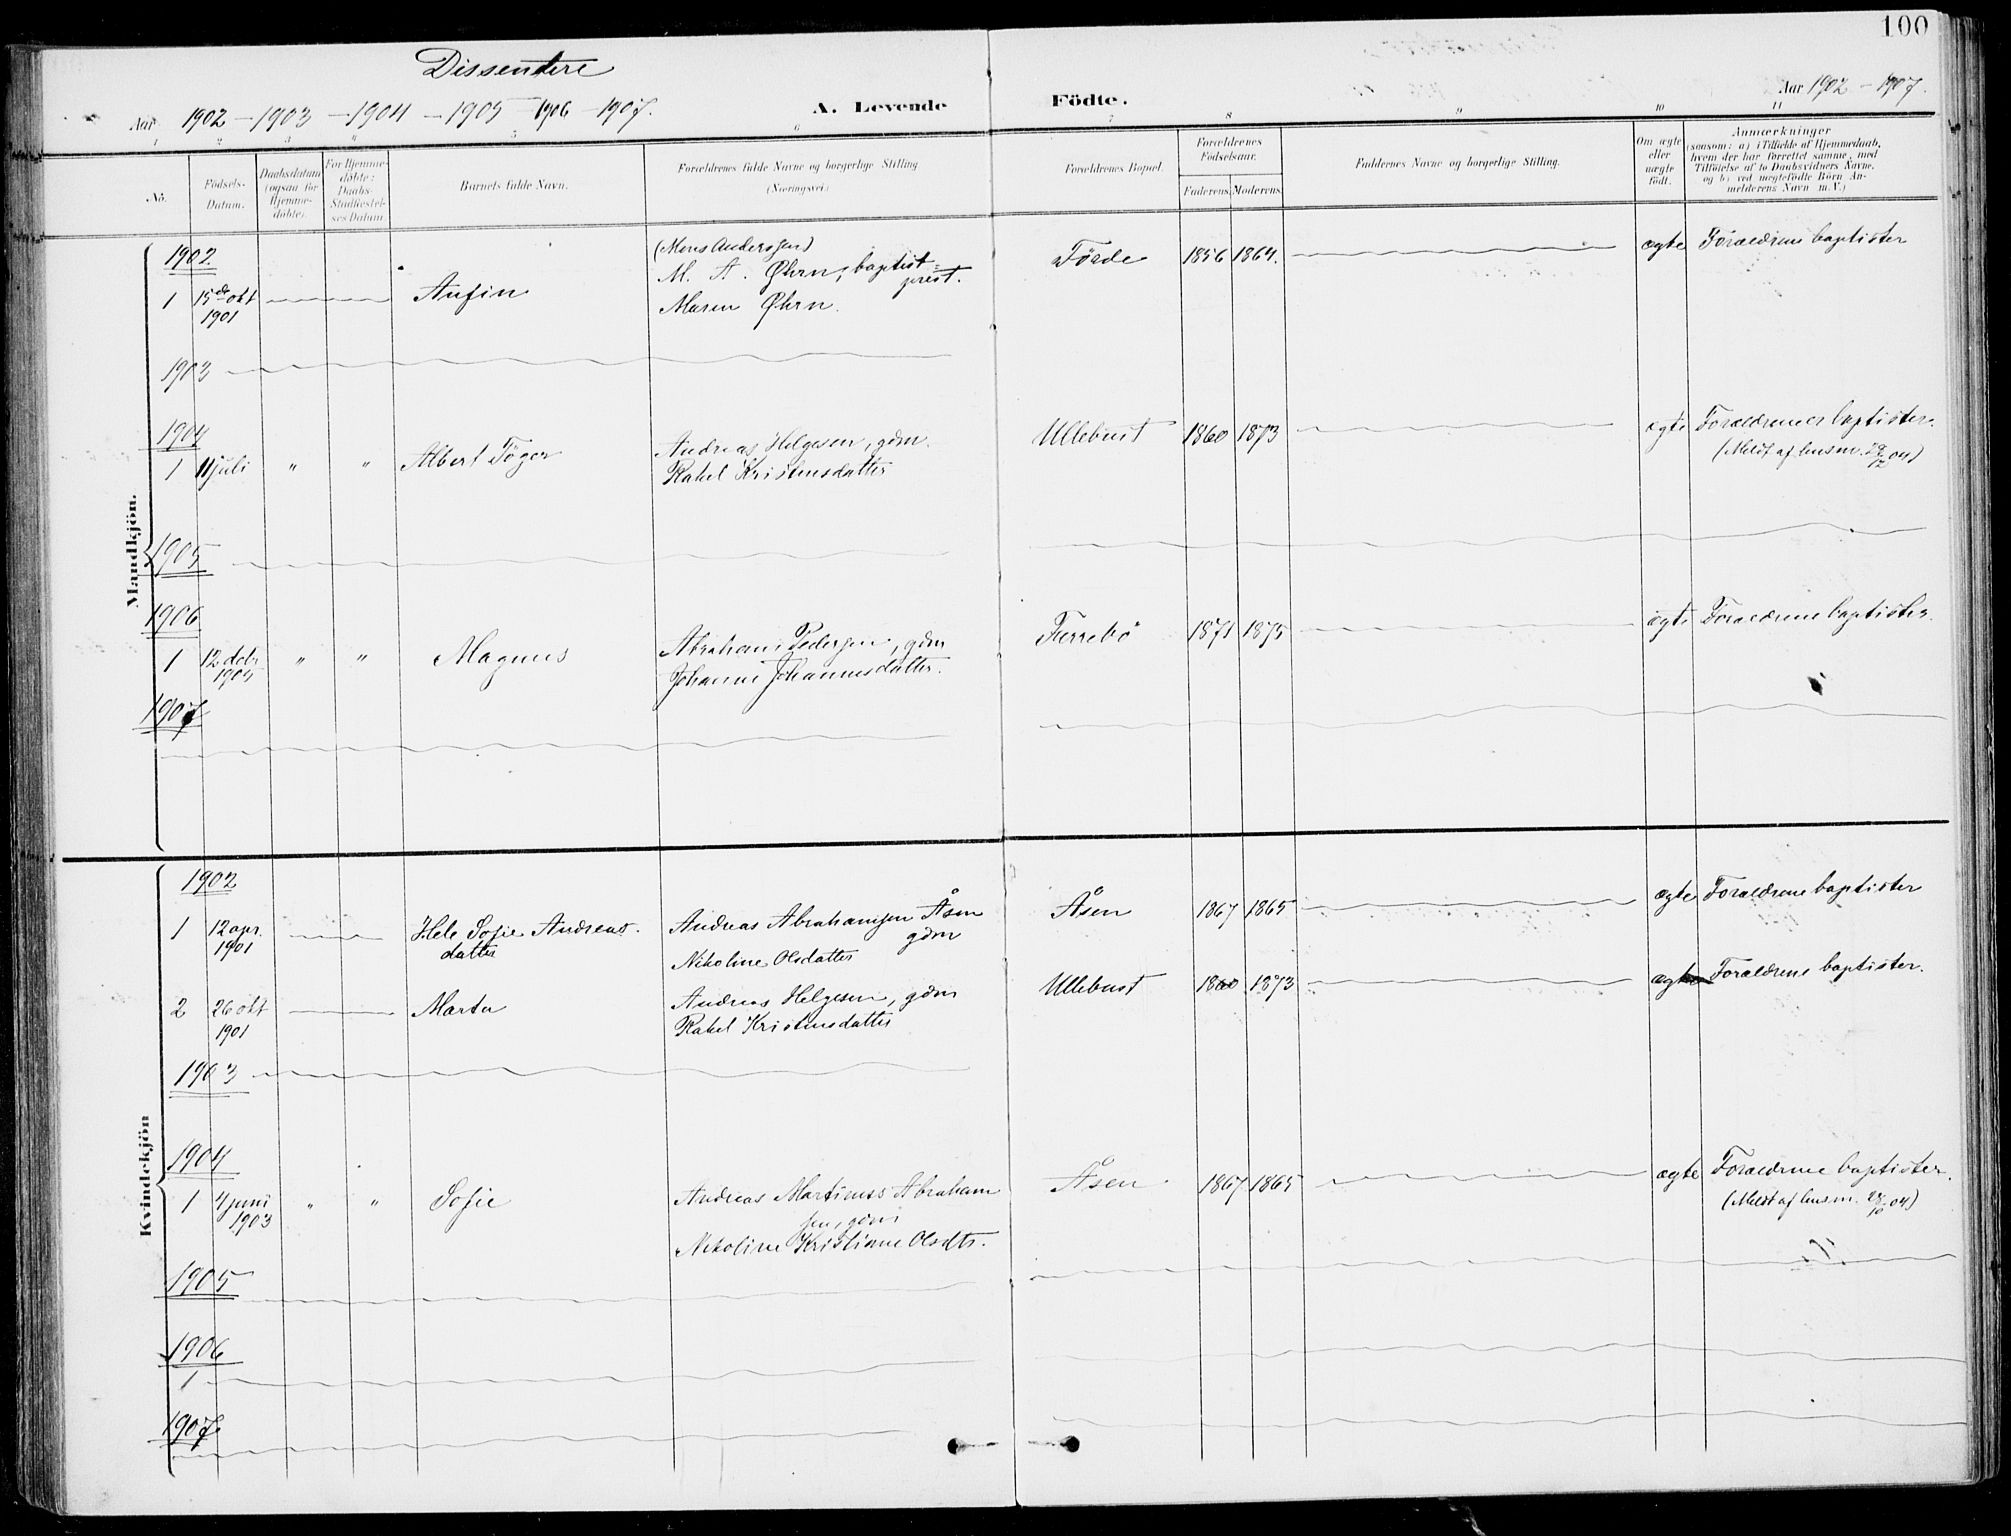 100
Dissentere
Aar 1902 – 1903 – 1904 – 1905 – 1906 – 1907.
A. Levende Födte.
Aar 1902 – 1907.
1 2 3 4 5 6 7 8 9 10 11
No.
Födsels-Datum.
Daabsdatum (ogsaa for Hjemmedöbte).
For Hjemmedöbte: Daabs-Stadfæstelses Datum
Barnets fulde Navn.
Forældrenes fulde Navne og borgerlige Stilling (Næringsvei.)
Forældrenes Bopæl.
Forældrenes Födselsaar.
Faderens Moderens
Faddernes Navne og borgerlige Stilling.
Om ægte eller uægte födt.
Anmærkninger
(saasom: a) i Tilfælde af Hjemmedaab, hvem der har forrettet samme, med Tilföielse af to Daabsvidners Navne, og b) ved uægtefödte Börn Anmelderens Navn m. V.)
Mandkjön.
1902
(Mons Anderssen)
1 15de okt 1901 Anfin M. A. Øhrn, baptist=prest. Førde 1856 1864. ægte Forældrene baptister
Maren Øhrn.
1903
1904
1 11 juli " " Albert Tøger Andreas Helgesen, gdm. Ullebust 1860 1873 ægte Forældrenes baptister.
Rakel Kristensdatter (Meldt af husm. 29/12 04)
1905
1906
1 12 debr 1905 " " Magnus Abraham Pedersen, gdm Furrebø 1871 1875 ægte Forældrene baptister
Johanne Johannesdatter.
1907
Kvindekjön
1902
1 12 apr. 1901 Hele Sofie Andreas-datter Andreas Abrahamsen Åsen gdm Åsen 1867 1865 ægte Forældrene baptister
Nikoline Olsdatter
2 26 okt 1901 Marta Andreas Helgesen, gdm Ullebust 1860 1873 ægte Forældrene baptister.
Rakel Kristensdatter
1903
1904
1 4 juni 1903 " " Sofie Andreas Martinuss Abraham Åsen 1867 1865 ægte Forældrene baptister.
sen, gdm (Meldt af husm. 28/10 04)
Nikoline Kristiane Olsdtr.
1905
1906
1
1907